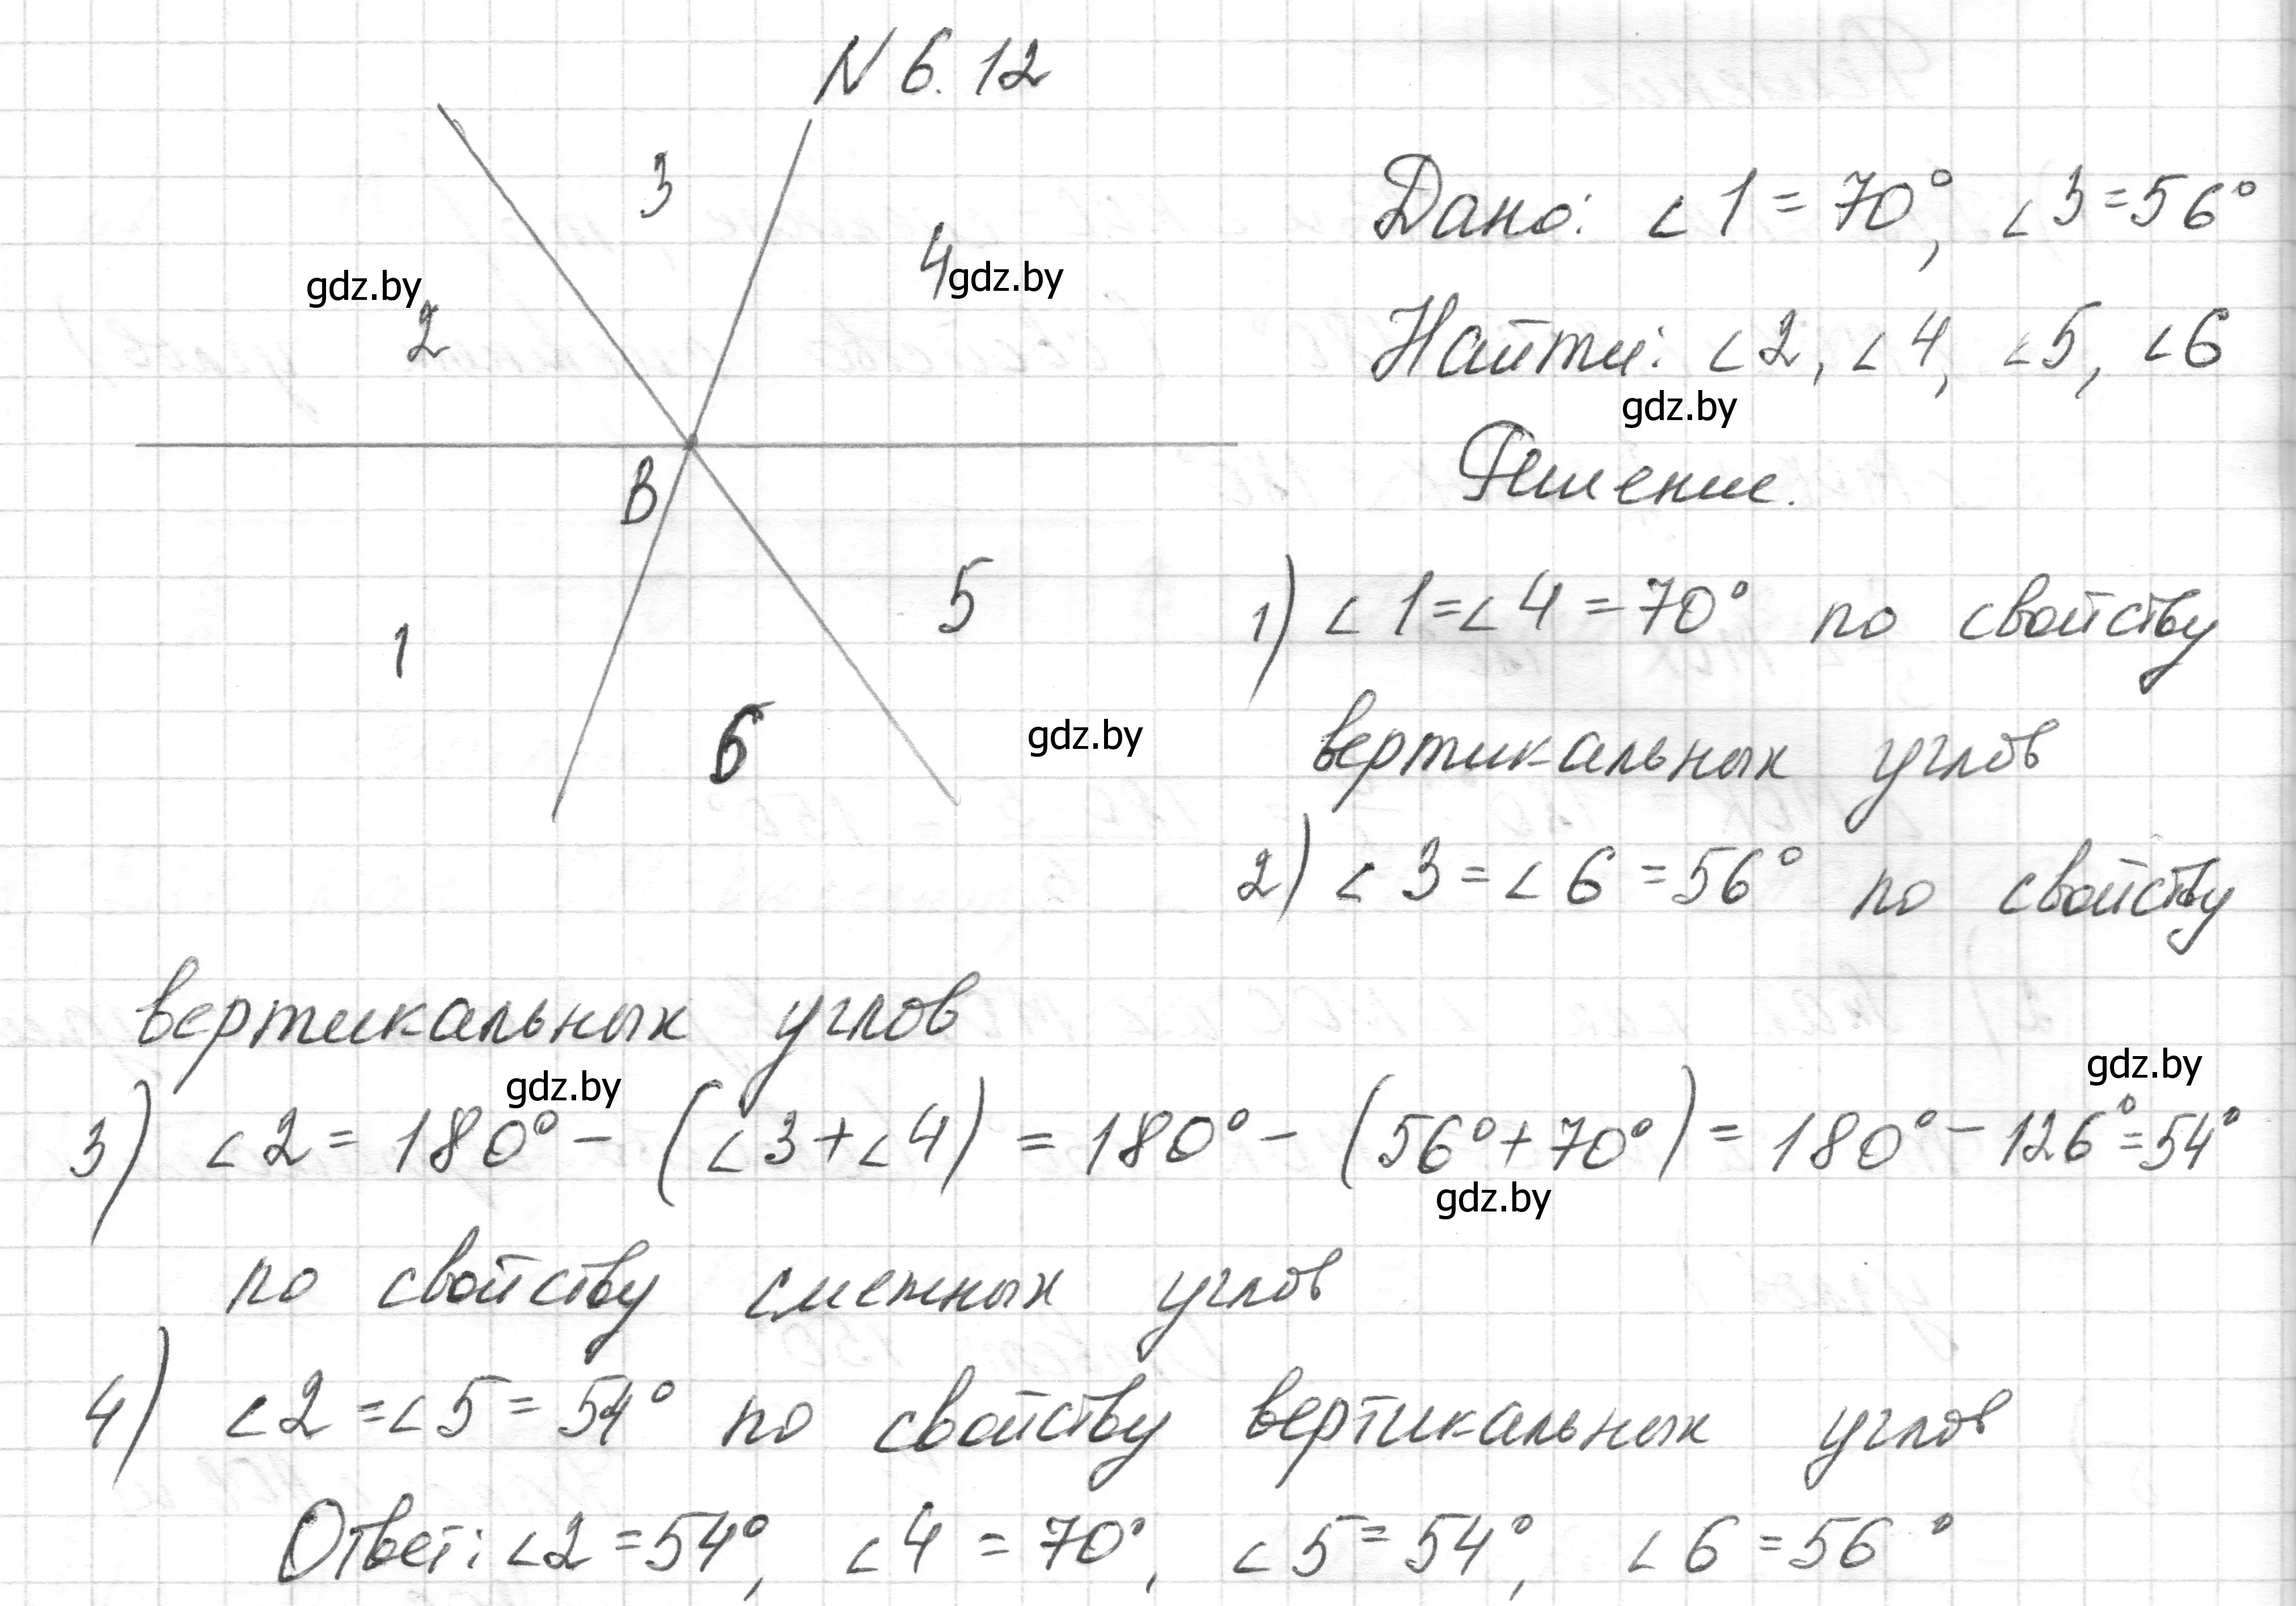 N 6.12
3
Дано: ∠1 = 70°, ∠3 = 56°
4
gdz.by
gdz.by
2
Найти: ∠2, ∠4, ∠5, ∠6
gdz.by
Решение.
B
5
1) ∠1 = ∠4 = 70° по свойству
1
вертикальных углов
6
gdz.by
2) ∠3 = ∠6 = 56° по свойству
вертикальных углов
gdz.by
gdz.by
3) ∠2 = 180° - (∠3 + ∠4) = 180° - (56° + 70°) = 180° - 126° = 54°
gdz.by
по свойству смежных углов
4) ∠2 = ∠5 = 54° по свойству вертикальных углов
Ответ: ∠2 = 54°, ∠4 = 70°, ∠5 = 54°, ∠6 = 56°